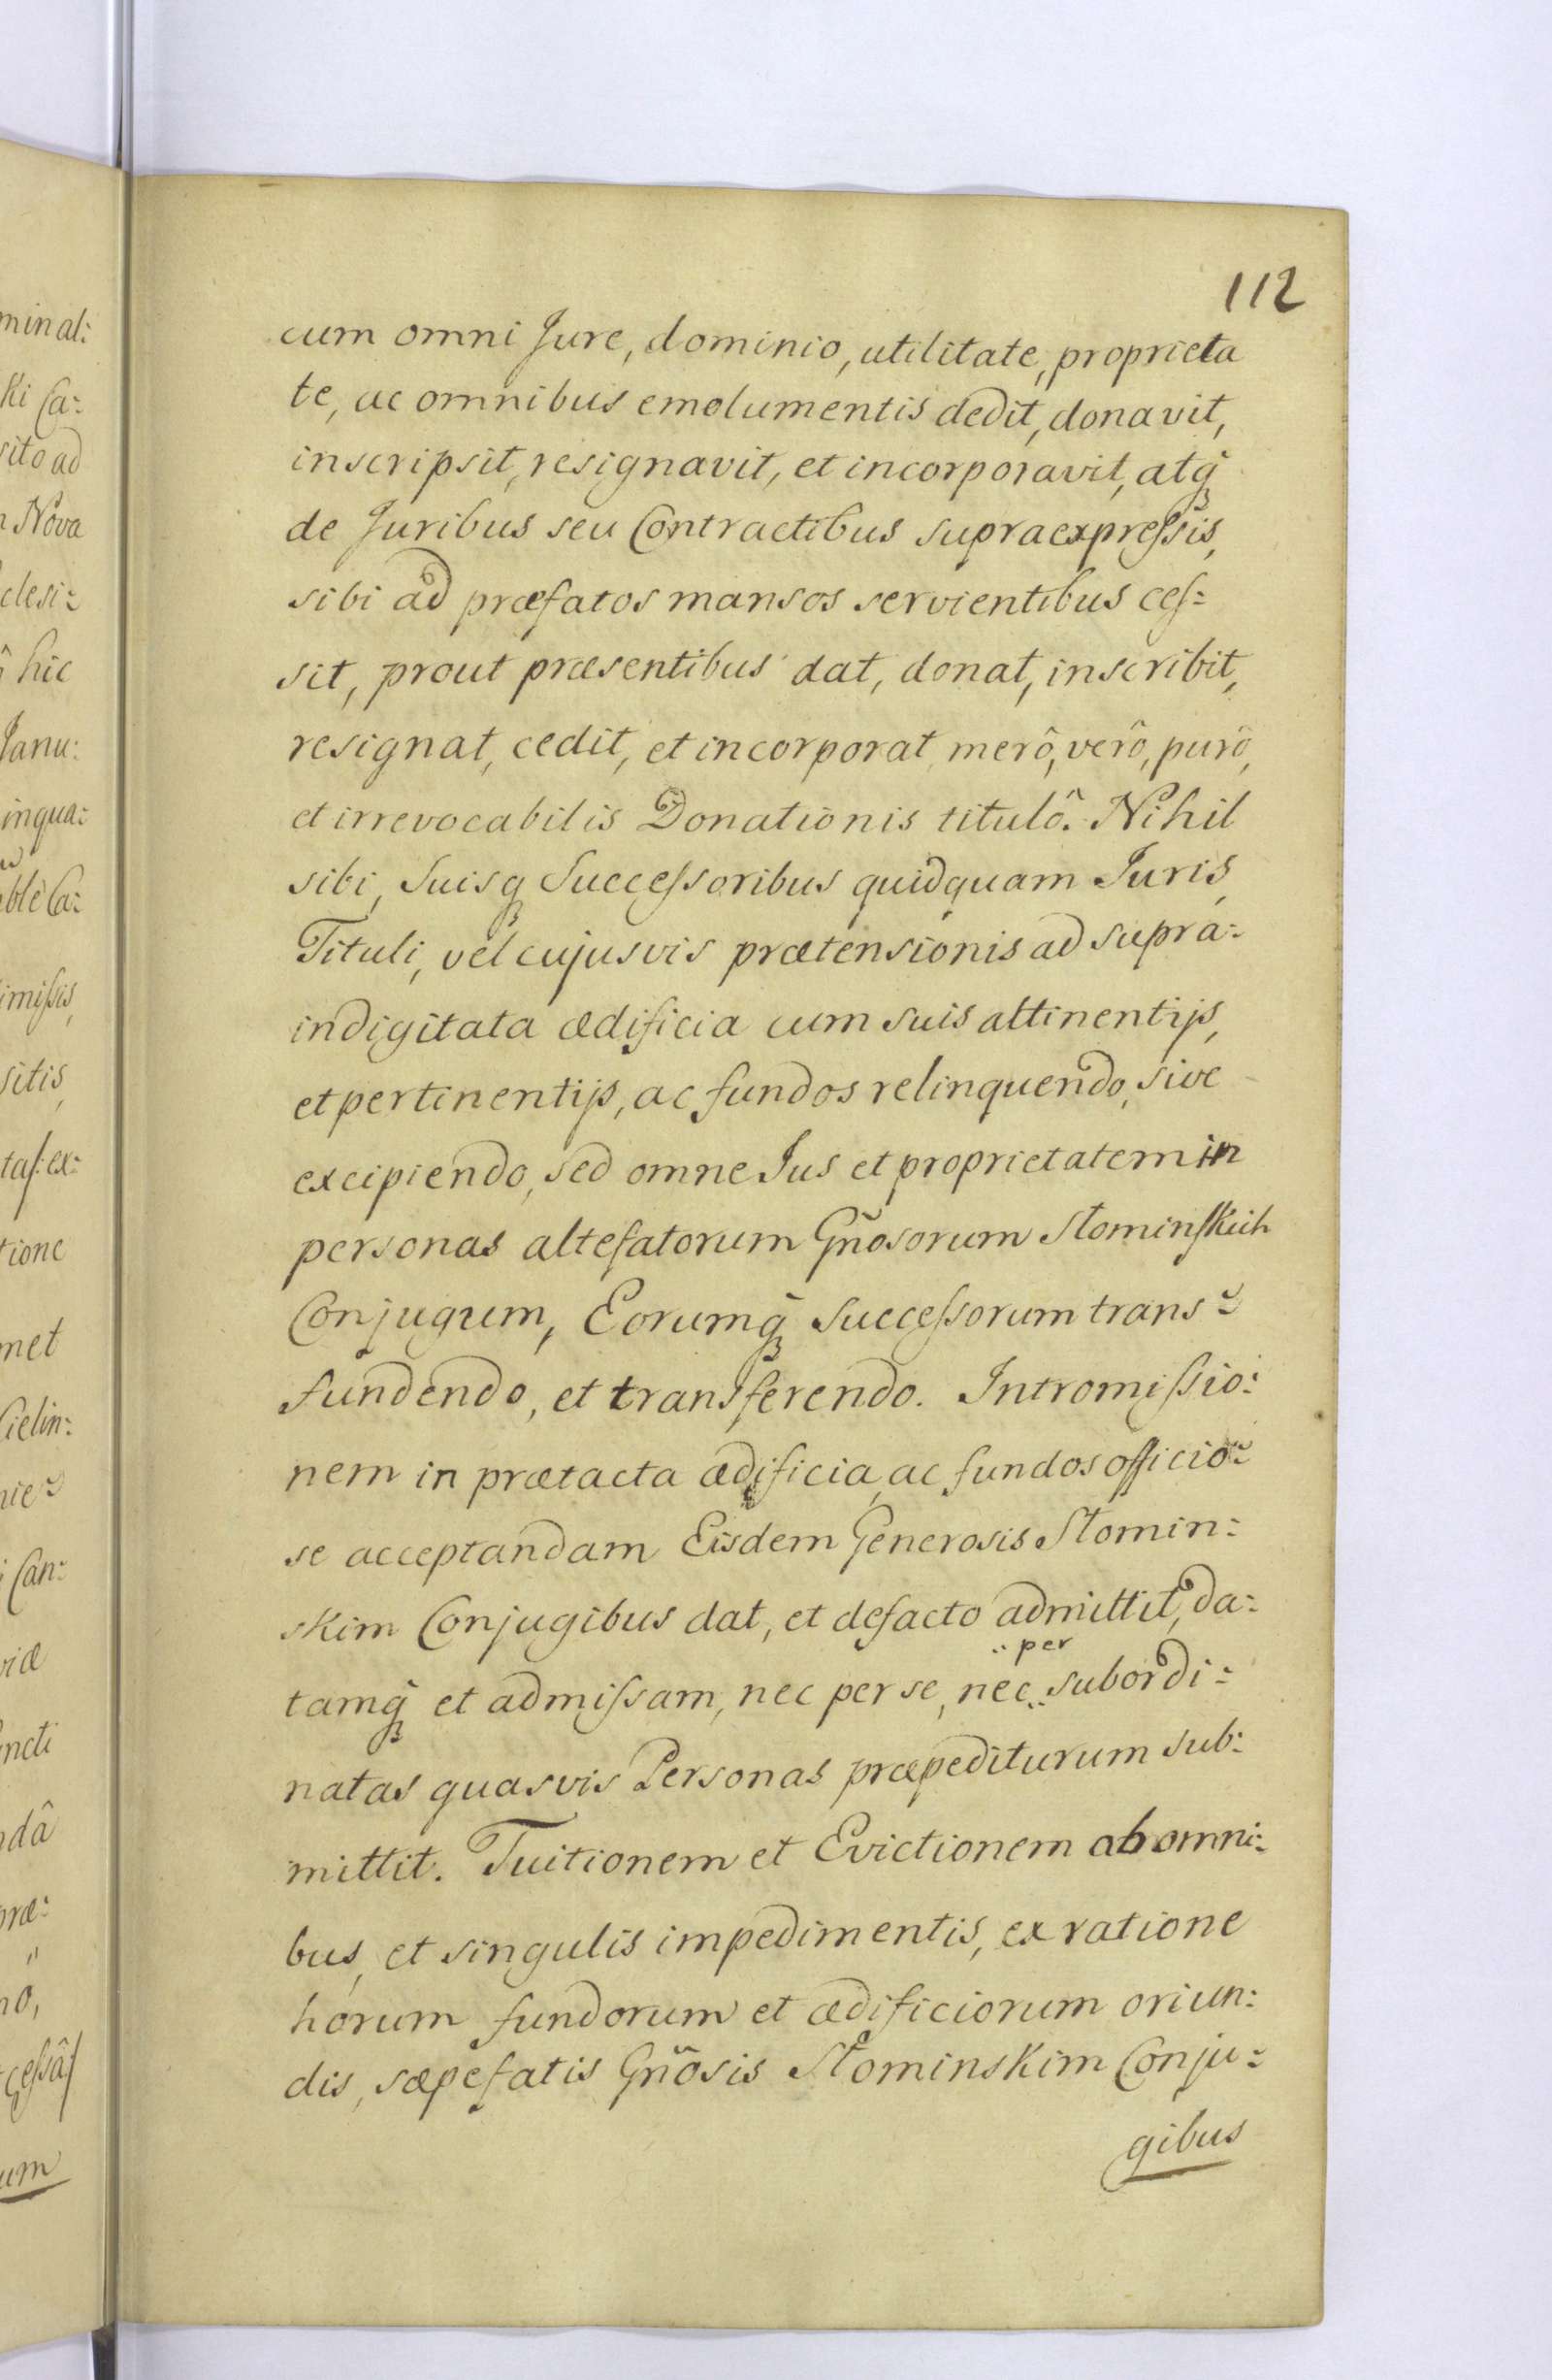 112
cum omni Jure, dominio, utilitate, proprieta
te, ac omnibus emolumentis dedit, donavit,
inscripsit, resignavit, et incorporavit, atq̃
de Juribus seu Contractibus supraexpreſsis,
sibi ad præfatos mansos servientibus ceſ:
sit, prout præsentibus dat, donat, inscribit,
resignat, cedit, et incorporat, merô, verô, purô,
et irrevocabilis Donationis titulô. Nihil
sibi, Suisq Succeſsoribus quidquam Juris,
Tituli, vel cujusvis prætensionis ad supra:
indigitata ædificia cum suis attinentijs,
et pertinentijs, ac fundos relinquendo, sive
excipiendo, sed omne Jus et proprietatem in
personas altefatorum Gñosorum Słominſkich
Conjugum, Eorumq̃ Succeſsorum trans:
fundendo, et transferendo. Intromiſsio:
nem in prætacta ædificia, ac fundos officio:
se acceptandam Eisdem Generosis Słomin:
skim Conjugibus dat, et defacto admittit, da:
¨ per
tamq̃ et admiſsam, nec per se, nec ¨ subordi:
natas quasvis Personas præpediturum sub:
mittit. Tuitionem et Evictionem ab omni:
bus, et singulis impedimentis, ex ratione
horum fundorum et ædificiorum oriun:
dis, sæpefatis Gñosis Słominskim Conju:
gibus
minal:
ki Ca:
sito ad
Nova
clesi:
hic
Janu:
inqua:
ble Ca:
imiſsis,
sitis,
taſ: ex:
tione
met
Cielin:
nie:
Can:
viæ
ncti
ndâ
præ:
no,
ceſsâ/
um